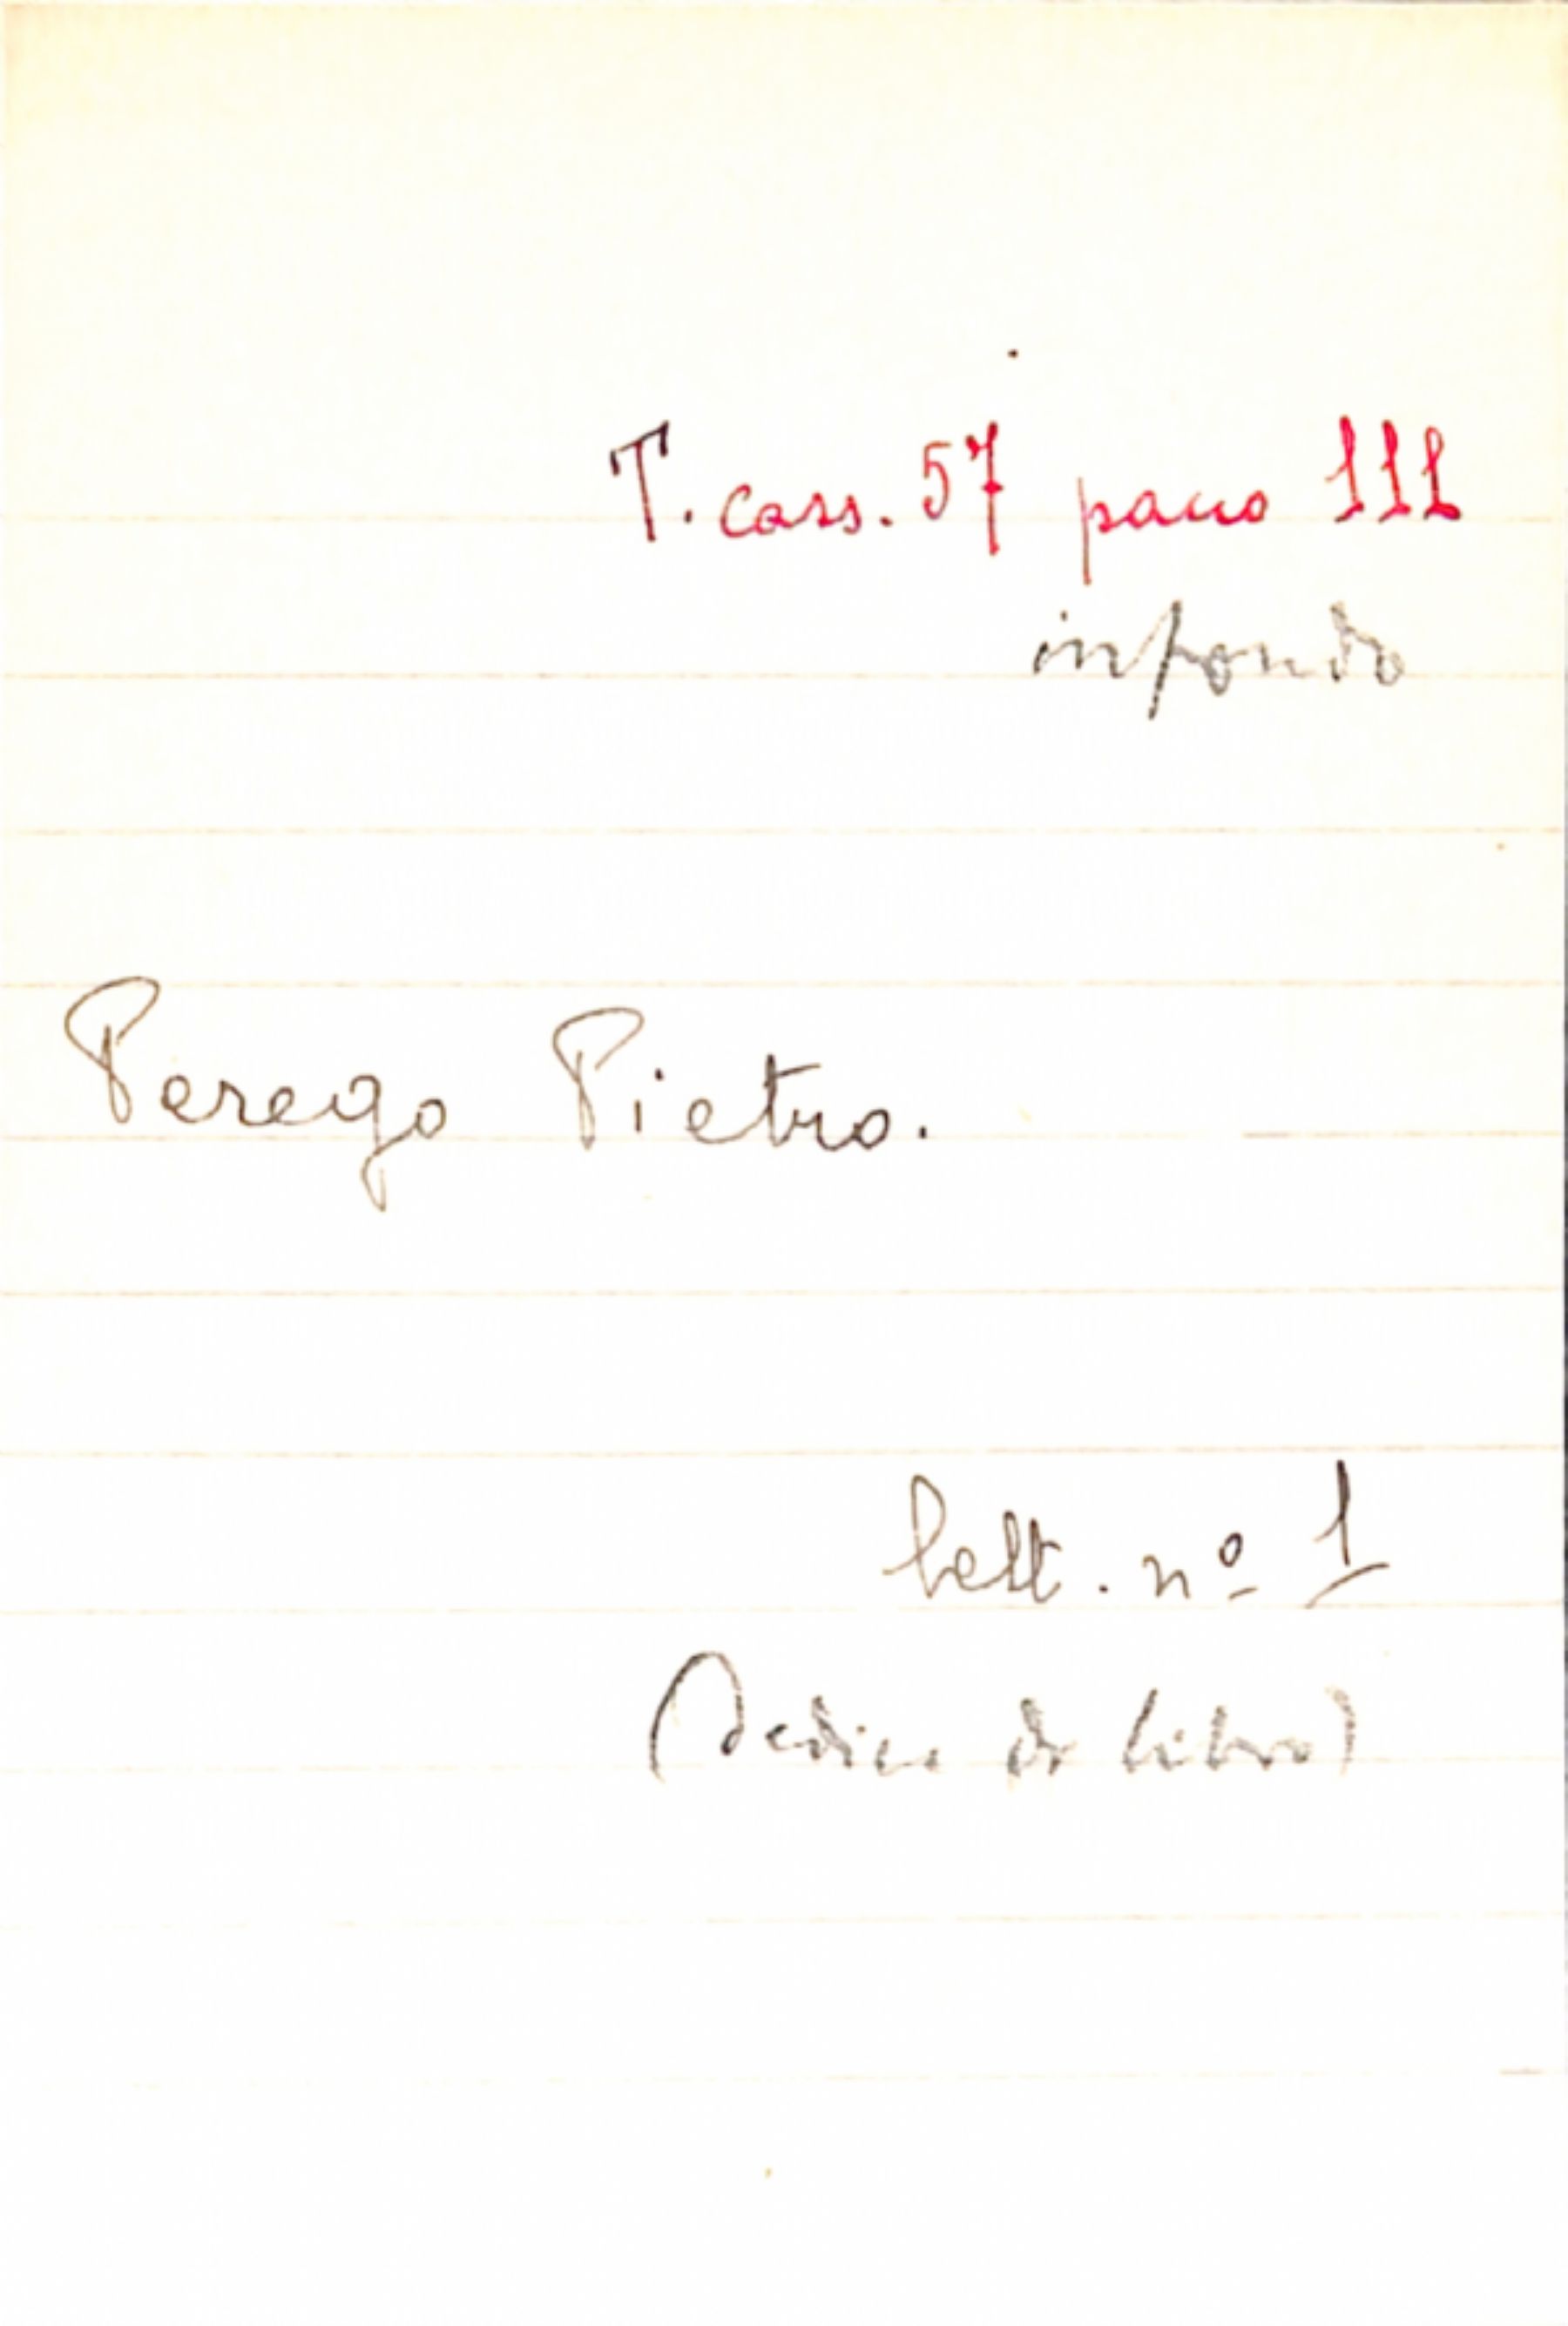 T. cass. 57 pacco 111
in fondo
Perego Pietro.
lett. nº 1
(dedica di libro)